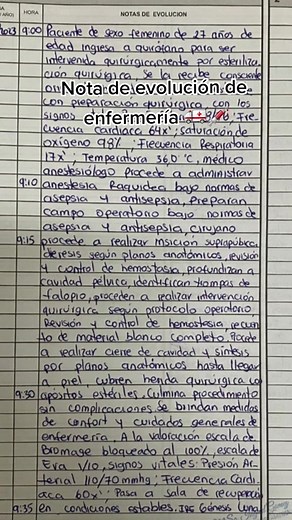 HORA
NOTAS DE EVOLUCION
9:00 Paciente de sexo femenino de 27 años de
edad ingresa a quirófano para ser
intervenida quirúrgicamente por esteriliza
ción quirúrgica, se la recibe consciente
Nota de evolución de
enfermería
con preparación quirúrgica con los
signos
Fre
cuencia cardiaca 64x'; saturación de
oxígeno 98%; Frecuencia Respiratoria
17x'; Temperatura 36.0 °C, médico
anestesiólogo procede a administrar
9:10 anestesia Raquidea bajo normas de
asepsia y antisepsia, Preparan
campo operatorio bajo normas de
asepsia y antisepsia, cirujano
9:15 procede a realizar insición suprapúbica,
diéresis según planos anatómicos, revisión
y control de hemostasia, profundizan a
cavidad pélvica, identifican trompas de
falopio, proceden a realizar intervención
quirúrgica según protocolo operatorio
Revisión y control de hemostasia, recuen
to de material blanco completo. Procede
a realizar cierre de cavidad y síntesis
por planos anatómicos hasta llegar
a piel, cubren herida quirúrgica con
9:30 apósitos estériles. Culmina procedimiento
sin complicaciones. Se brindan medidas
de confort y cuidados generales de
enfermería. A la valoración escala de
Bromage bloqueado al 100%, escala de
Eva 1/10, signos vitales: Presión Ar-
terial 110/70 mmhg; Frecuencia Cardi
aca 60x'; Pasa a sala de recuperación
9:35 en condiciones estables. Génesis Luna